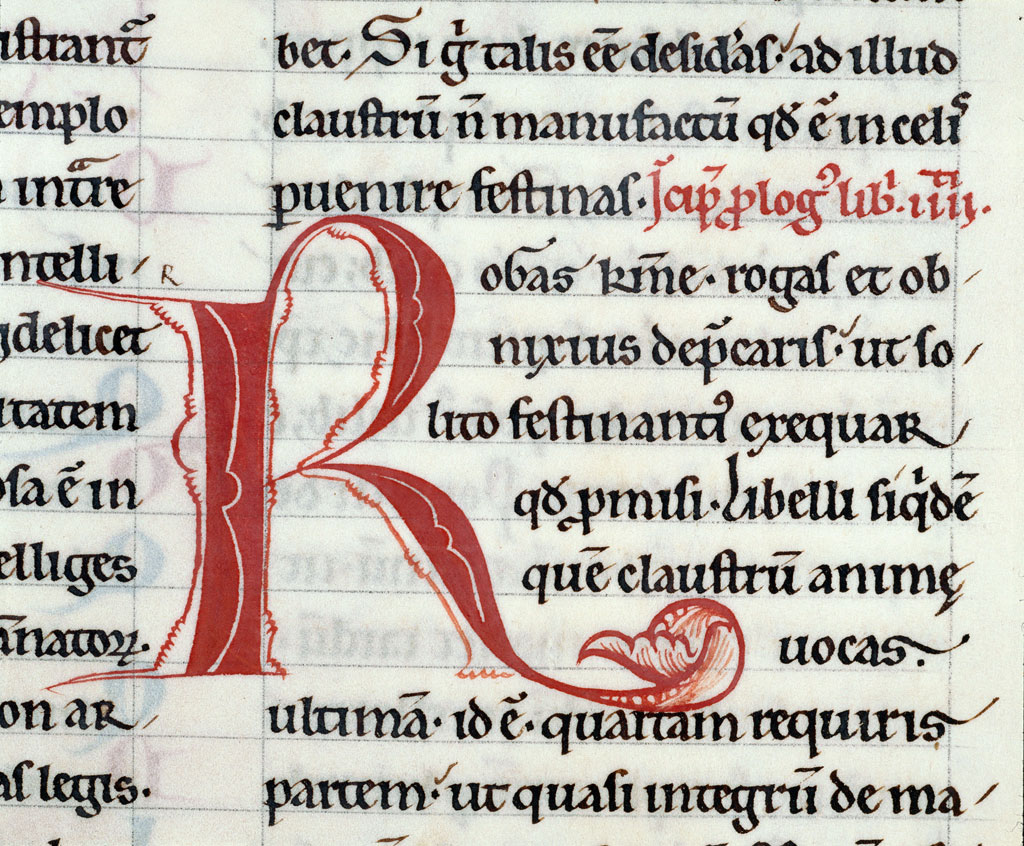 iſtrantᷓ
emplo
intᷓre
ntelli
R
delicet
tatem
oſa ē in
elliges
natoꝝ.
on aR
aſ legis.
bet. Si gͥ talis eē̄ deſidˀas. ad illud
clauſtrū n̄ manufactū qđ ē in celiſ
ꝑuenire feſtinaſ. Iͦcip̄ ꝓlogꝰ libͥ. iiiiͭͥ.
Robas km̄e. rogaſ et ob
nixius dep̄cariſ. ut ſo
lito feſtinantiꝰ exequar
qđ ꝓmiſi. Libelli ſiqͥdē
quē clauſtrū animę
uocas.
ultimā. id ē. quartam requiris
partem. ut quaſi integrū de ma